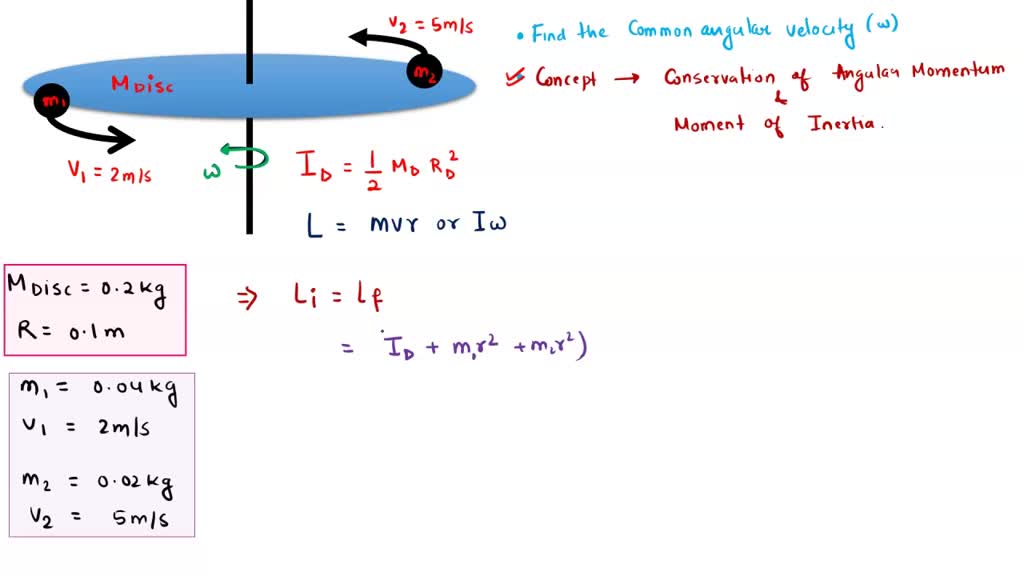 V₂ = 5m/s
m₂
M Disc
m₁
V₁ = 2m/s
ω
• Find the Common angular velocity (ω)
Concept → Conservation of Angular Momentum
&
Moment of Inertia.
I_D = 1/2 M_D R_D²
L = mvr or Iω
M Disc = 0.2kg
R = 0.1m
m₁ = 0.04kg
V₁ = 2m/s
m₂ = 0.02kg
V₂ = 5m/s
⇒ Li = Lf
= I_D + m₁r² + m₂r²)